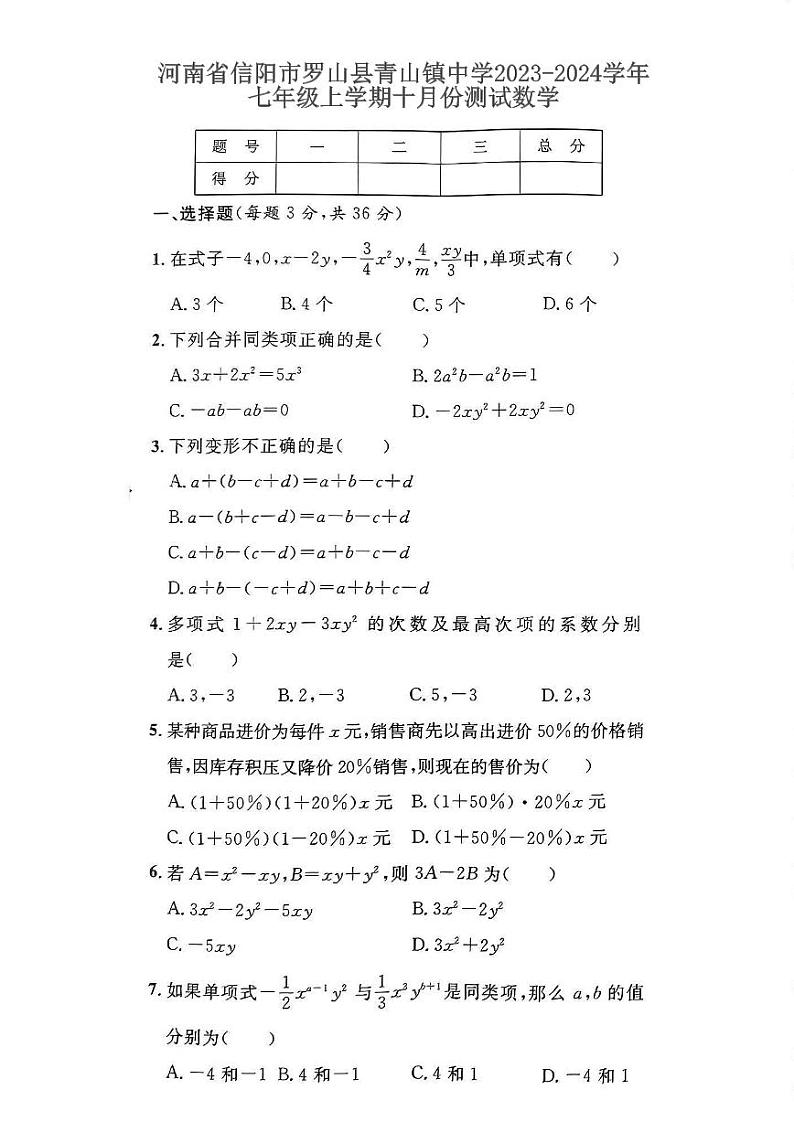 河南省信阳市罗山县青山镇中学2023-2024学年
七年级上学期十月份测试数学
题 号 一 二 三 总 分
得 分
一、选择题(每题 3 分,共 36 分)
1. 在式子-4,0,x-2y,-\frac{3}{4}x²y,\frac{4}{m},\frac{xy}{3}中,单项式有(  )
A. 3 个 B. 4 个 C. 5 个 D. 6 个
2. 下列合并同类项正确的是(  )
A. 3x+2x²=5x³ B. 2a²b-a²b=1
C. -ab-ab=0 D. -2xy²+2xy²=0
3. 下列变形不正确的是(  )
A. a+(b-c+d)=a+b-c+d
B. a-(b+c-d)=a-b-c+d
C. a+b-(c-d)=a+b-c-d
D. a+b-(-c+d)=a+b+c-d
4. 多项式 1+2xy-3xy² 的次数及最高次项的系数分别
是(  )
A. 3,-3 B. 2,-3 C. 5,-3 D. 2,3
5. 某种商品进价为每件 x 元,销售商先以高出进价 50%的价格销
售,因库存积压又降价 20%销售,则现在的售价为(  )
A. (1+50%)(1+20%)x 元 B. (1+50%)·20%x 元
C. (1+50%)(1-20%)x 元 D. (1+50%-20%)x 元
6. 若 A=x²-xy,B=xy+y²,则 3A-2B 为(  )
A. 3x²-2y²-5xy B. 3x²-2y²
C. -5xy D. 3x²+2y²
7. 如果单项式-\frac{1}{2}x^{a-1}y² 与\frac{1}{3}x³y^{b+1}是同类项,那么 a,b 的值
分别为(  )
A. -4 和-1 B. 4 和-1 C. 4 和 1 D. -4 和 1